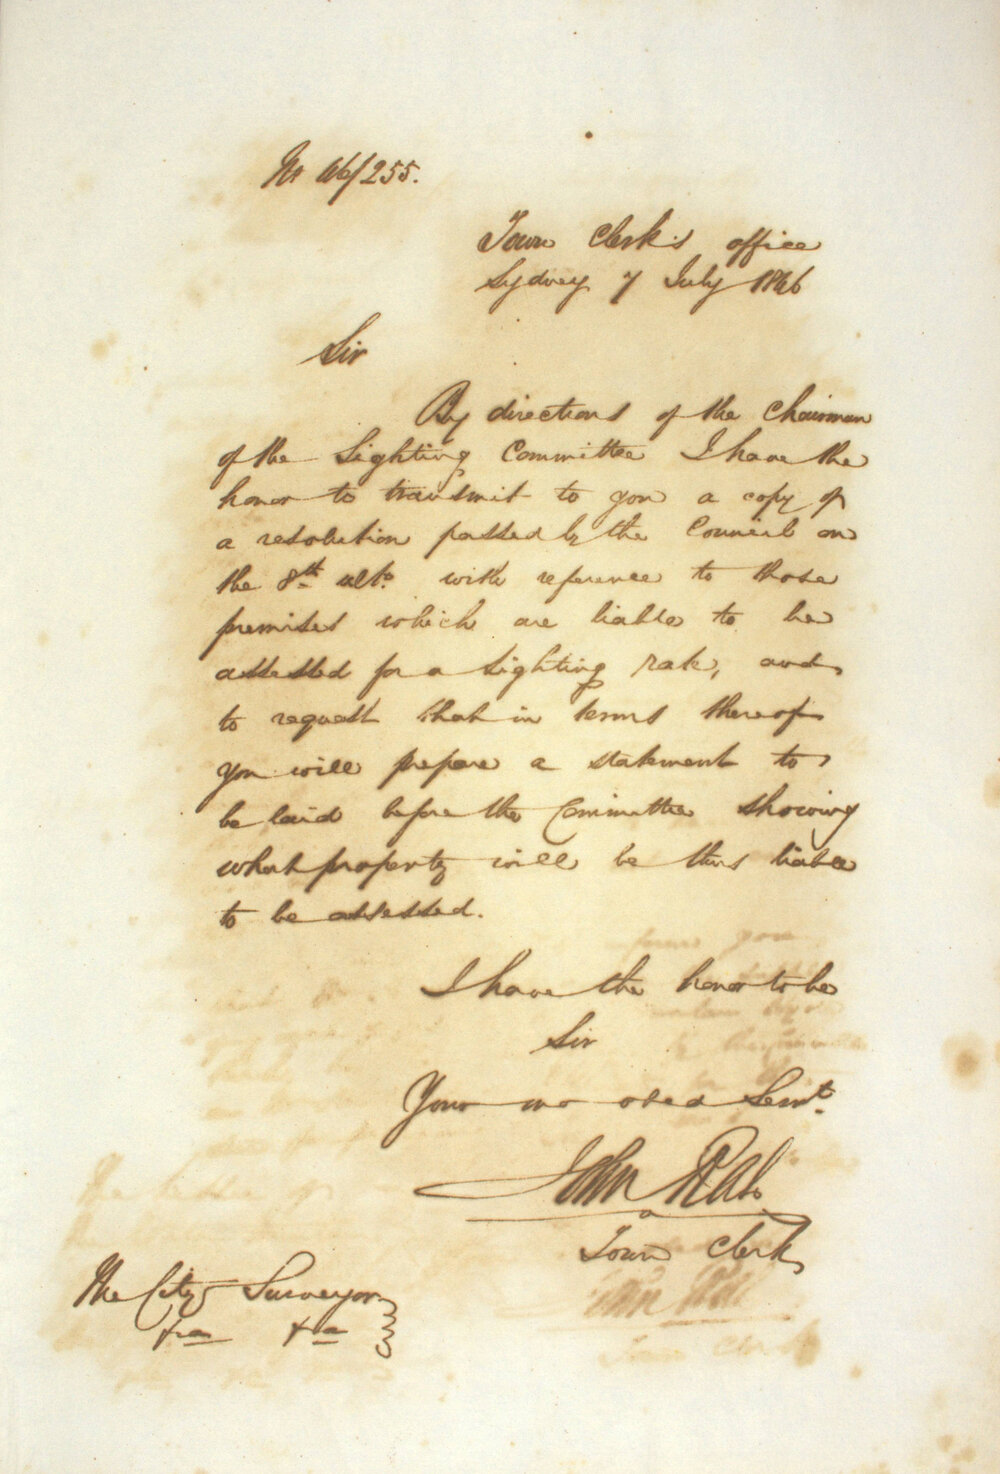 No 46/255.
Town Clerk's office
Sydney 7 July 1846
Sir
By directions of the Chairman
of the Lighting Committee I have the
honor to transmit to you a copy of
a resolution passed by the Council on
the 8th ulto. with reference to those
premises which are liable to be
assessed for a Lighting rate, and
to request that in terms thereof
you will prepare a statement to
be laid before the Committee showing
what property will be thus liable
to be assessed.
I have the honor to be
Sir
Your mo obed Servt.
John Rae
Town Clerk
The City Surveyor
&ca &ca